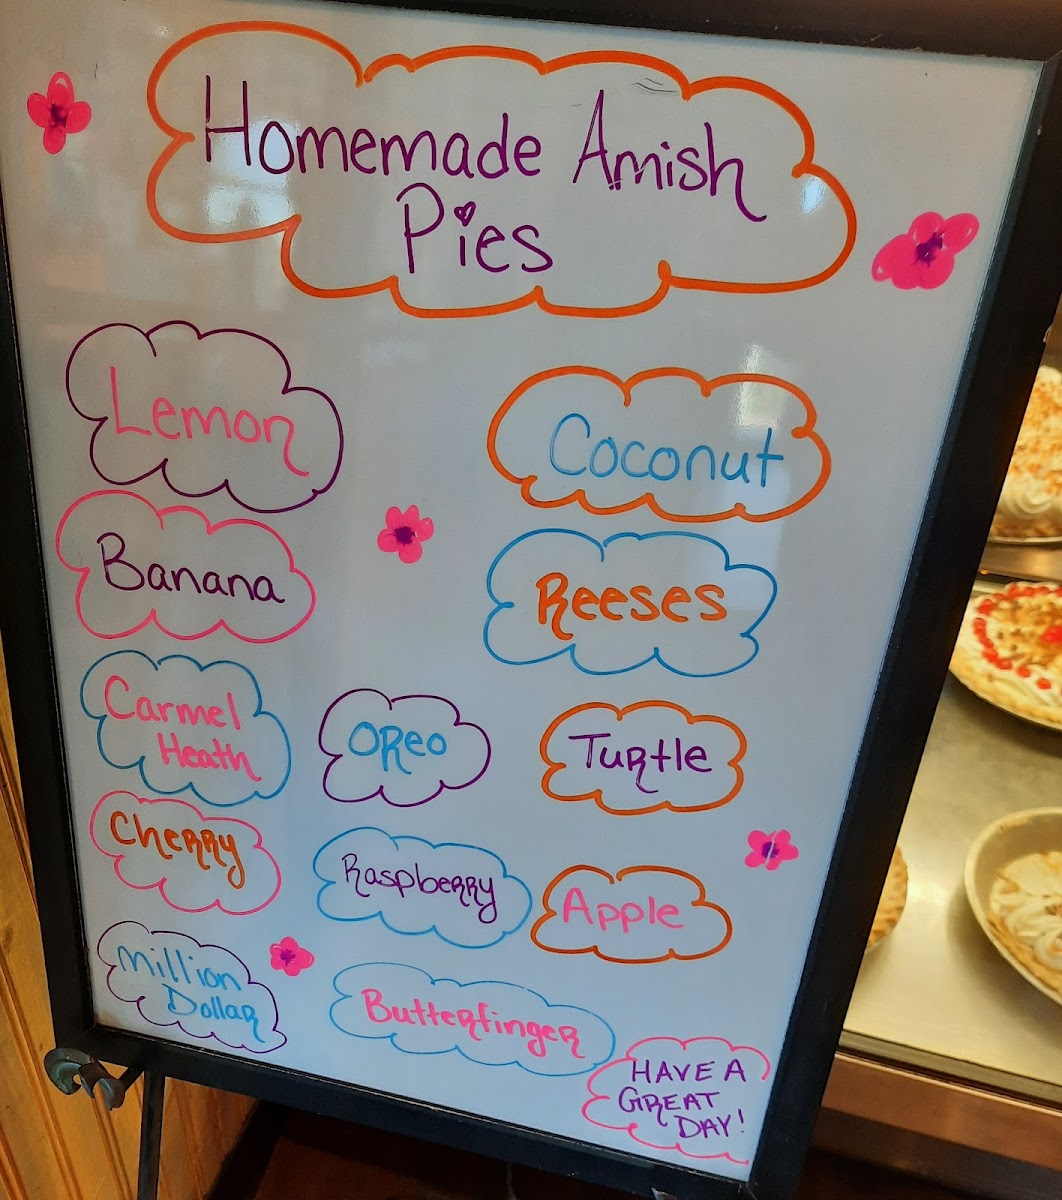 Homemade Amish
Pies
Lemon
Coconut
Banana
Reeses
Carmel
Heath
Oreo
Turtle
Cherry
Raspberry
Apple
Million
Dollar
Butterfinger
HAVE A
GREAT
DAY!